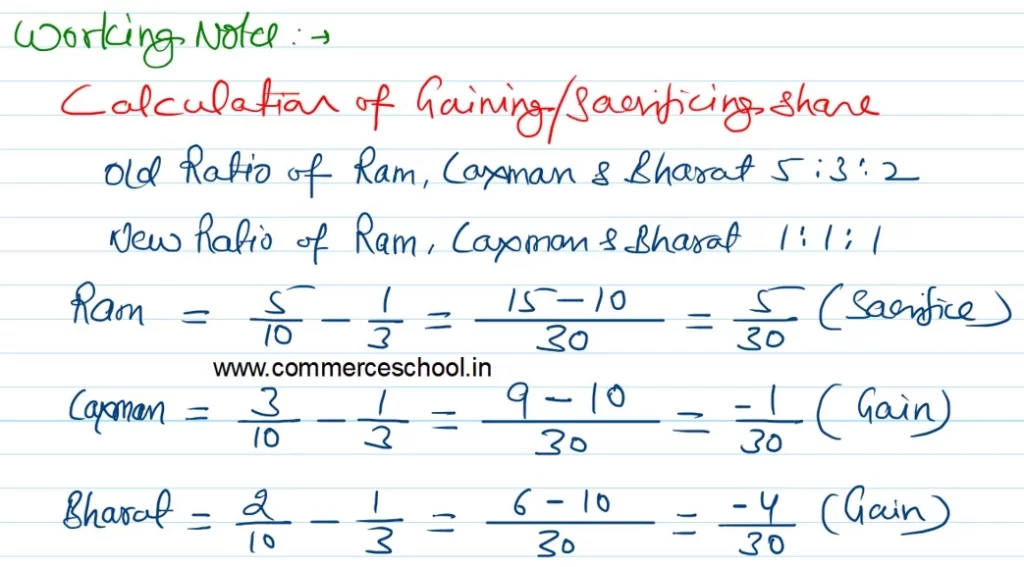 Working Note :→
Calculation of Gaining/Sacrificing share
Old Ratio of Ram, Laxman & Bharat 5:3:2
New Ratio of Ram, Laxman & Bharat 1:1:1
Ram = 5/10 - 1/3 = 15-10/30 = 5/30 (Sacrifice)
www.commerceschool.in
Laxman = 3/10 - 1/3 = 9-10/30 = -1/30 (Gain)
Bharat = 2/10 - 1/3 = 6-10/30 = -4/30 (Gain)